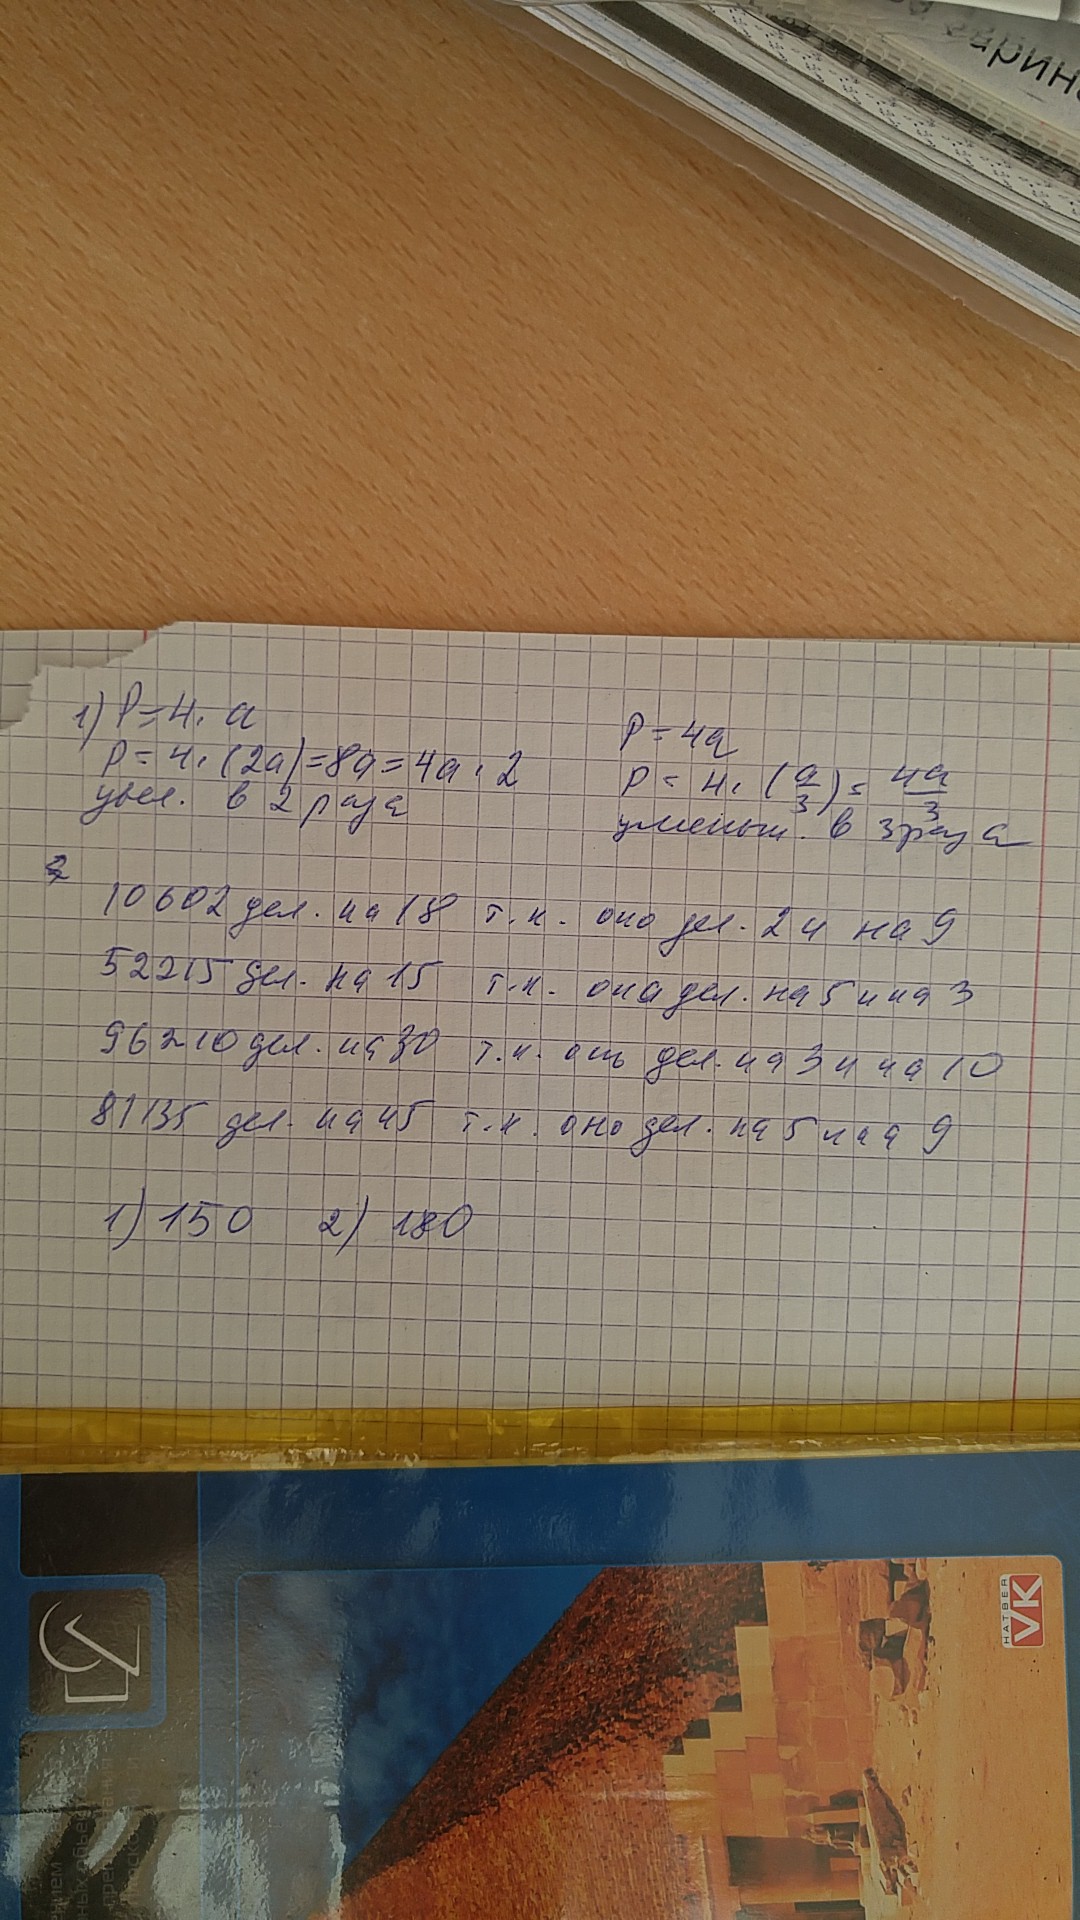 1) P = 4 · a
P = 4 · (2a) = 8a = 4a · 2
увел. в 2 раза
P = 4a
P = 4 · (a/3) = 4a/3
уменьш. в 3 раза
2
10602 дел. на 18 т.к. оно дел. 2 и на 9
52215 дел. на 15 т.к. она дел. на 5 и на 3
96210 дел. на 30 т.к. дел. на 3 и на 10
81135 дел. на 45 т.к. оно дел. на 5 и на 9
1) 150 2) 180
HATBER
VK